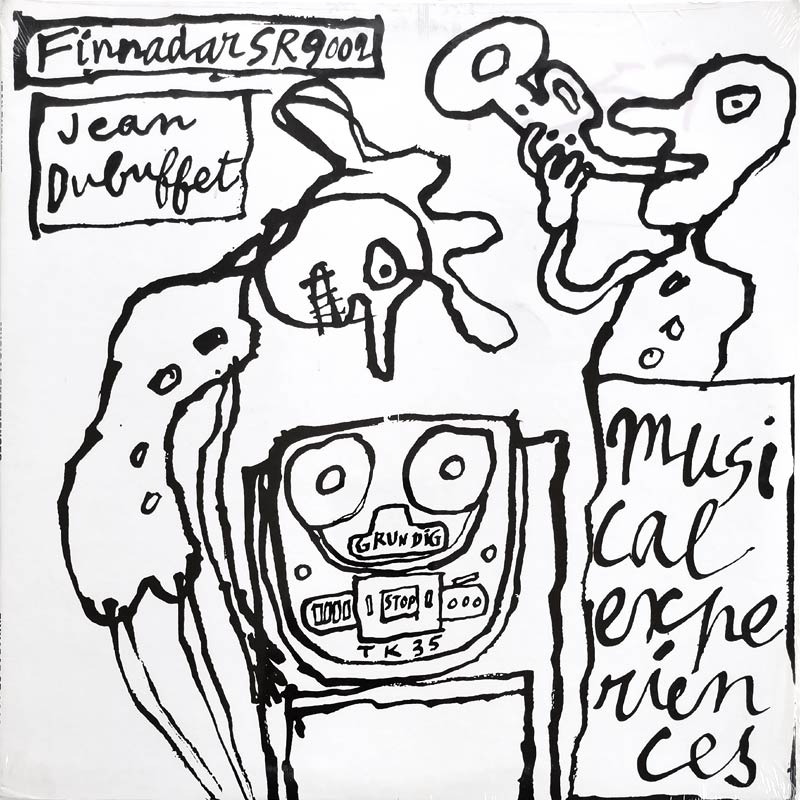 Finnadar SR9002
Jean
Dubuffet
GRUNDIG
STOP
TK 35
musi
cal
expe
rien
ces